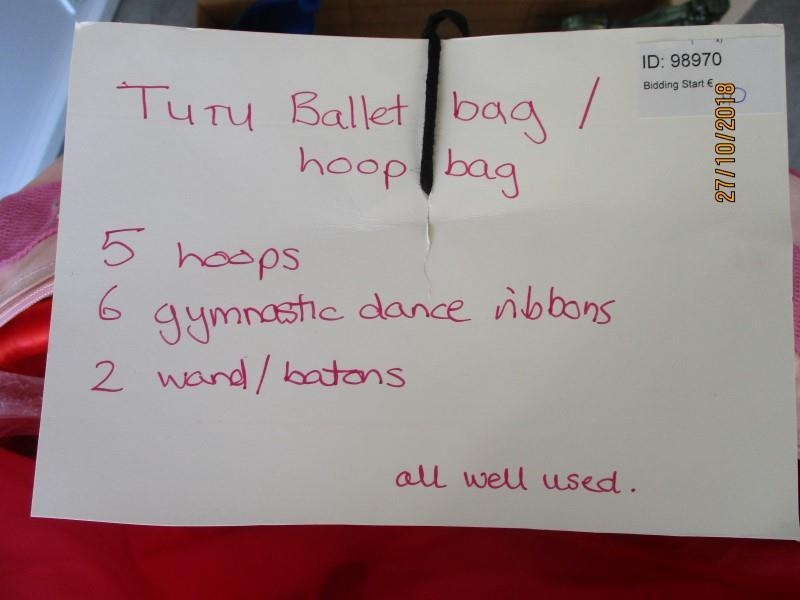 Tutu Ballet bag /
hoop bag
5 hoops
6 gymnastic dance ribbons
2 wand/batons
all well used.
ID: 98970
Bidding Start €
27/10/2018